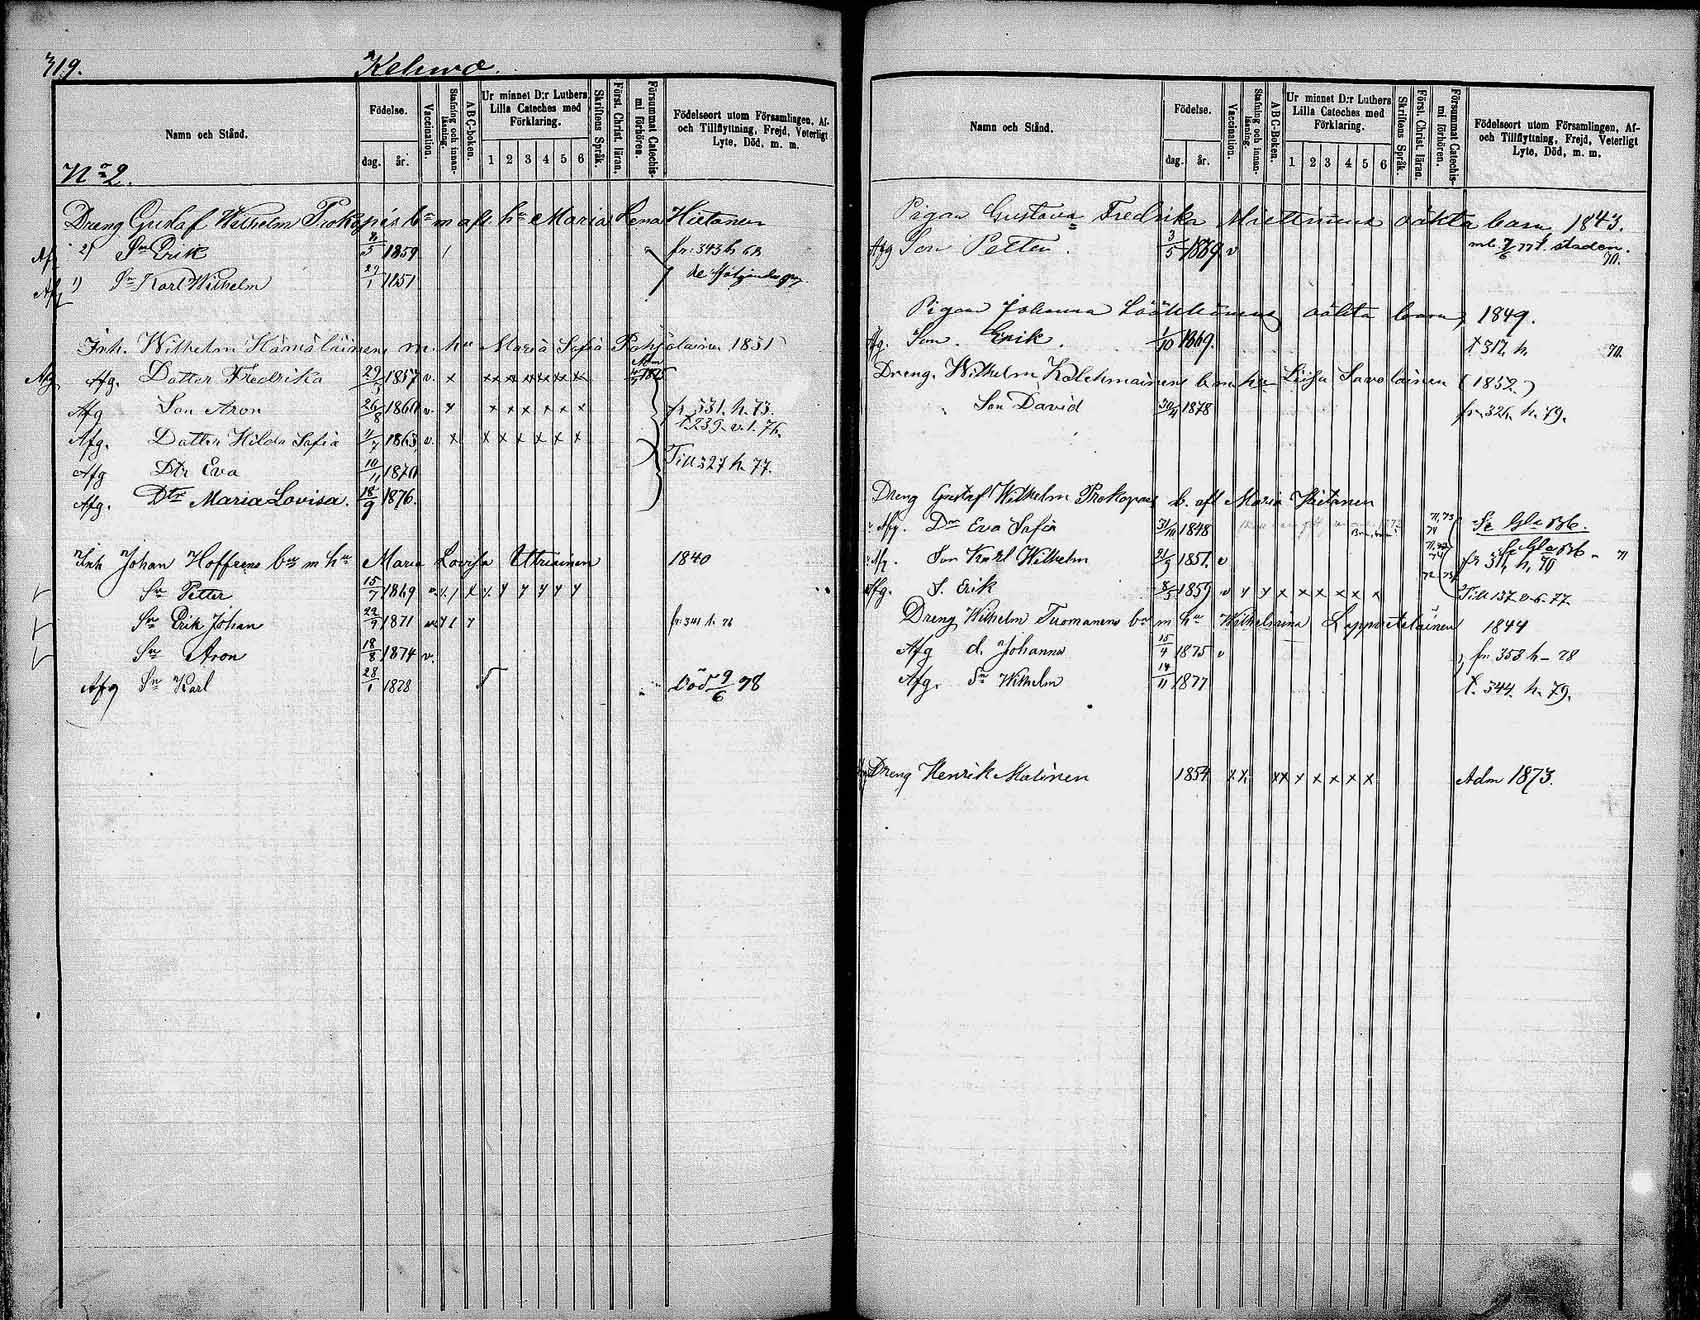 319.
Kelwä.
Namn och Stånd.
Födelse.
dag.
år.
Vaccination.
Stafning och innan-läsning.
ABC-boken.
Ur minnet D:r Luthers Lilla Cateches med Förklaring.
1 2 3 4 5 6
Skriftens Språk.
Först. Christ. läran.
Försummat Catechis-mi förhören.
Födelseort utom Församlingen, Af- och Tillflyttning, Frejd, Veterligt Lyte, Död, m. m.
No 2.
Dreng Gustaf Wilhelm Prokopis bn m afl. hu Maria Lena Hietanen
2) Sn Erik 8/5 1859 / fr. 343 h 68
Afg 1) Sn Karl Wilhelm 1851
Inh. Wilhelm Hämäläinens m. hu Maria Sofia Pohjolainen 1831
Afg Afg. Dotter Fredrika 29/ 1857 v. x xx xx xx x x x
Afg Son Aron 26/8 1860 v. x x x x x x x fr. 331. h. 73.
t. 239. v. 1. 76.
Afg. Dotter Hilda Sofia 1863 v. x x x x x x x
Afg Dtr Eva 10/11 1870 Till 327 h. 77.
Afg. Dtr Maria Lovisa. 18/9 1876.
Inh Johan Hoffrens bn m hu Maria Lovisa Utriainen 1840
Sn Petter 15/7 1869
Sn Erik Johan 22/9 1871 fr. 341 h. 76
Sn Aron 18/8 1874 v.
Afg Sn Karl 28/1 1878 Död 9/6 78
Namn och Stånd.
Födelse.
dag.
år.
Vaccination.
Stafning och innan-läsning.
ABC-Boken.
Ur minnet D:r Luthers Lilla Cateches med Förklaring.
1 2 3 4 5 6
Skriftens Språk.
Först. Christ. läran.
Försummat Catechis-mi förhören.
Födelseort utom Församlingen, Af- och Tillflyttning, Frejd, Veterligt Lyte, Död, m. m.
Pigan Gustava Fredrika Miettinens oäkta barn, 1843.
Afg Son Petter. 3/5 1869. v t. staden. 70.
Pigan Johanna Löökkönens oäkta barn, 1849.
Afg. Son. Erik. 1/10 1869. t. 317. h. 70.
Dreng. Wilhelm Kolehmainens b. m. hu Lisa Savolainen (1852)
Son David 30/4 1878 fr. 326. h. 79.
Dreng Gustaf Wilhelm Prokopis b. afl Maria Hietanen
Afg. Dr Eva Sofia 31/10 1848
Afg. Son Karl Wilhelm 1851. v
Afg. S. Erik 8/5 1859 v x x x x x x x x Till 137. v. 6. 77.
Dreng Wilhelm Tuomanens bn m hu Wilhelmina Lappeteläinen 1844
Afg d. Johanna 15/4 1875 v fr. 358 h - 78
Afg. Sn Wilhelm 14/11 1877 t. 344. h. 79.
Dreng Henrik Malinen 1854 x x. xx x x x x x Adm 1873.